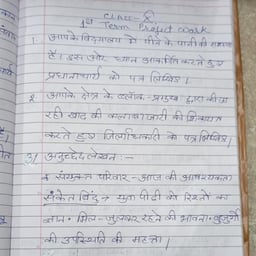 CLASS - X
1st Term Project work
1. आपके विद्यालय में पीने के पानी की समस्या
है। इस ओर ध्यान आकर्षित करते हुए
प्रधानाचार्य को पत्र लिखिए।
2 आपके क्षेत्र के ब्लॉक-प्रमुख द्वारा की जा
रही खाद की कालाबाजारी की शिकायत
करते हुए जिलाधिकारी को पत्र लिखिए।
3) अनुच्छेद लेखन :-
संयुक्त परिवार - आज की आवश्यकता
संकेत बिंदु → युवा पीढ़ी को रिश्तों का
ज्ञान • मिल-जुलकर रहने की भावना • बुजुर्गों
की उपस्थिति की महत्ता।